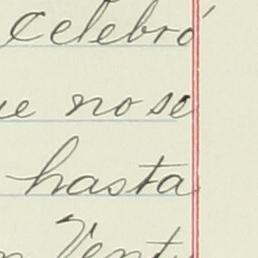 celebró
ue no se
hasta
n Vent